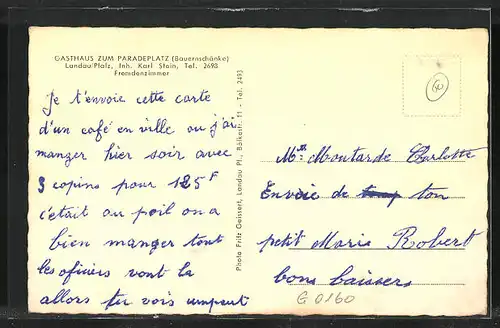 GASTHAUS ZUM PARADEPLATZ (Bauernschänke)
Landau/Pfalz, Inh. Karl Stein, Tel. 2693
Fremdenzimmer
Je t'envoie cette carte
d'un café en ville ou j'ai
manger hier soir avec
3 copins pour 125F
c'était au poil on a
bien manger tout
les oficiers vont la
allors tu vois
Photo Fritz Geissert, Landau Pf., - Tel. 2493
Mlle Moutarde Charlotte
Envoie de ton
petit Marie Robert
bons baissers
G 0160